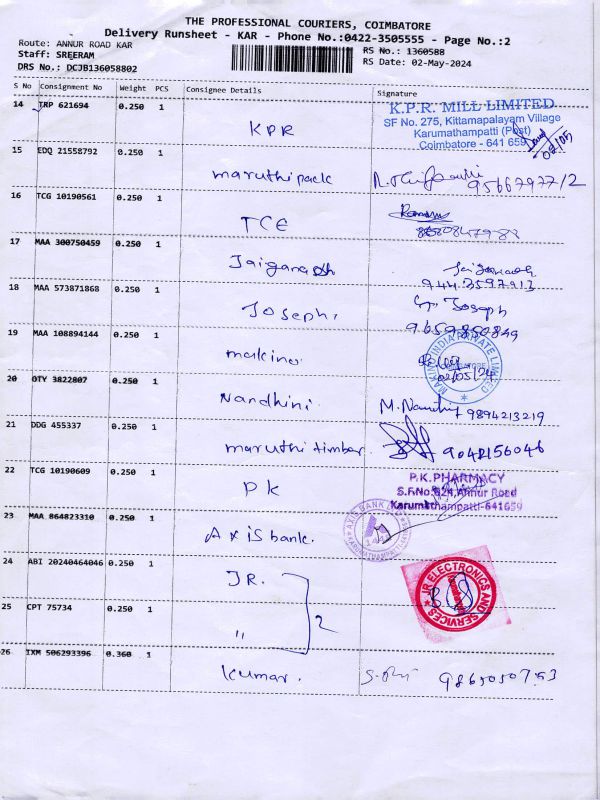 THE PROFESSIONAL COURIERS, COIMBATORE
Delivery Runsheet - KAR - Phone No.:0422-3505555 - Page No.:2
Route: ANNUR ROAD KAR
RS No.: 1360588
Staff: SREERAM
RS Date: 02-May-2024
DRS No.: DCJB136058802
S No Consignment No Weight PCS Consignee Details Signature
14 TRP 621694 0.250 1 KPR
K.P.R. MILL LIMITED
SF No. 275, Kittamapalayam Village
Karumathampatti (Post)
Coimbatore - 641 659
02/05
15 EDQ 21558792 0.250 1 maruthipack
16 TCG 10190561 0.250 1 TCE
17 MAA 300750459 0.250 1 Jaiganesh
9443597913
18 MAA 573871868 0.250 1 Joseph,
Joseph
9659850849
19 MAA 108894144 0.250 1 makino
MAKINO INDIA PRIVATE LIMITED
02/05/24
20 OTY 3822807 0.250 1 Nandhini. 9894213219
21 DDG 455337 0.250 1 maruthi timbar. 9042156046
22 TCG 10190609 0.250 1 PK
P.K.PHARMACY
S.F.No.824,Annur Road
Karumathampatti-641659
23 MAA 864823310 0.250 1 Axisbank.
AXIS BANK
24 ABI 20240464046 0.250 1 JR.
JR ELECTRONICS AND SERVICES
25 CPT 75734 0.250 1 " 2
26 IXM 506293396 0.360 1 Kumar.